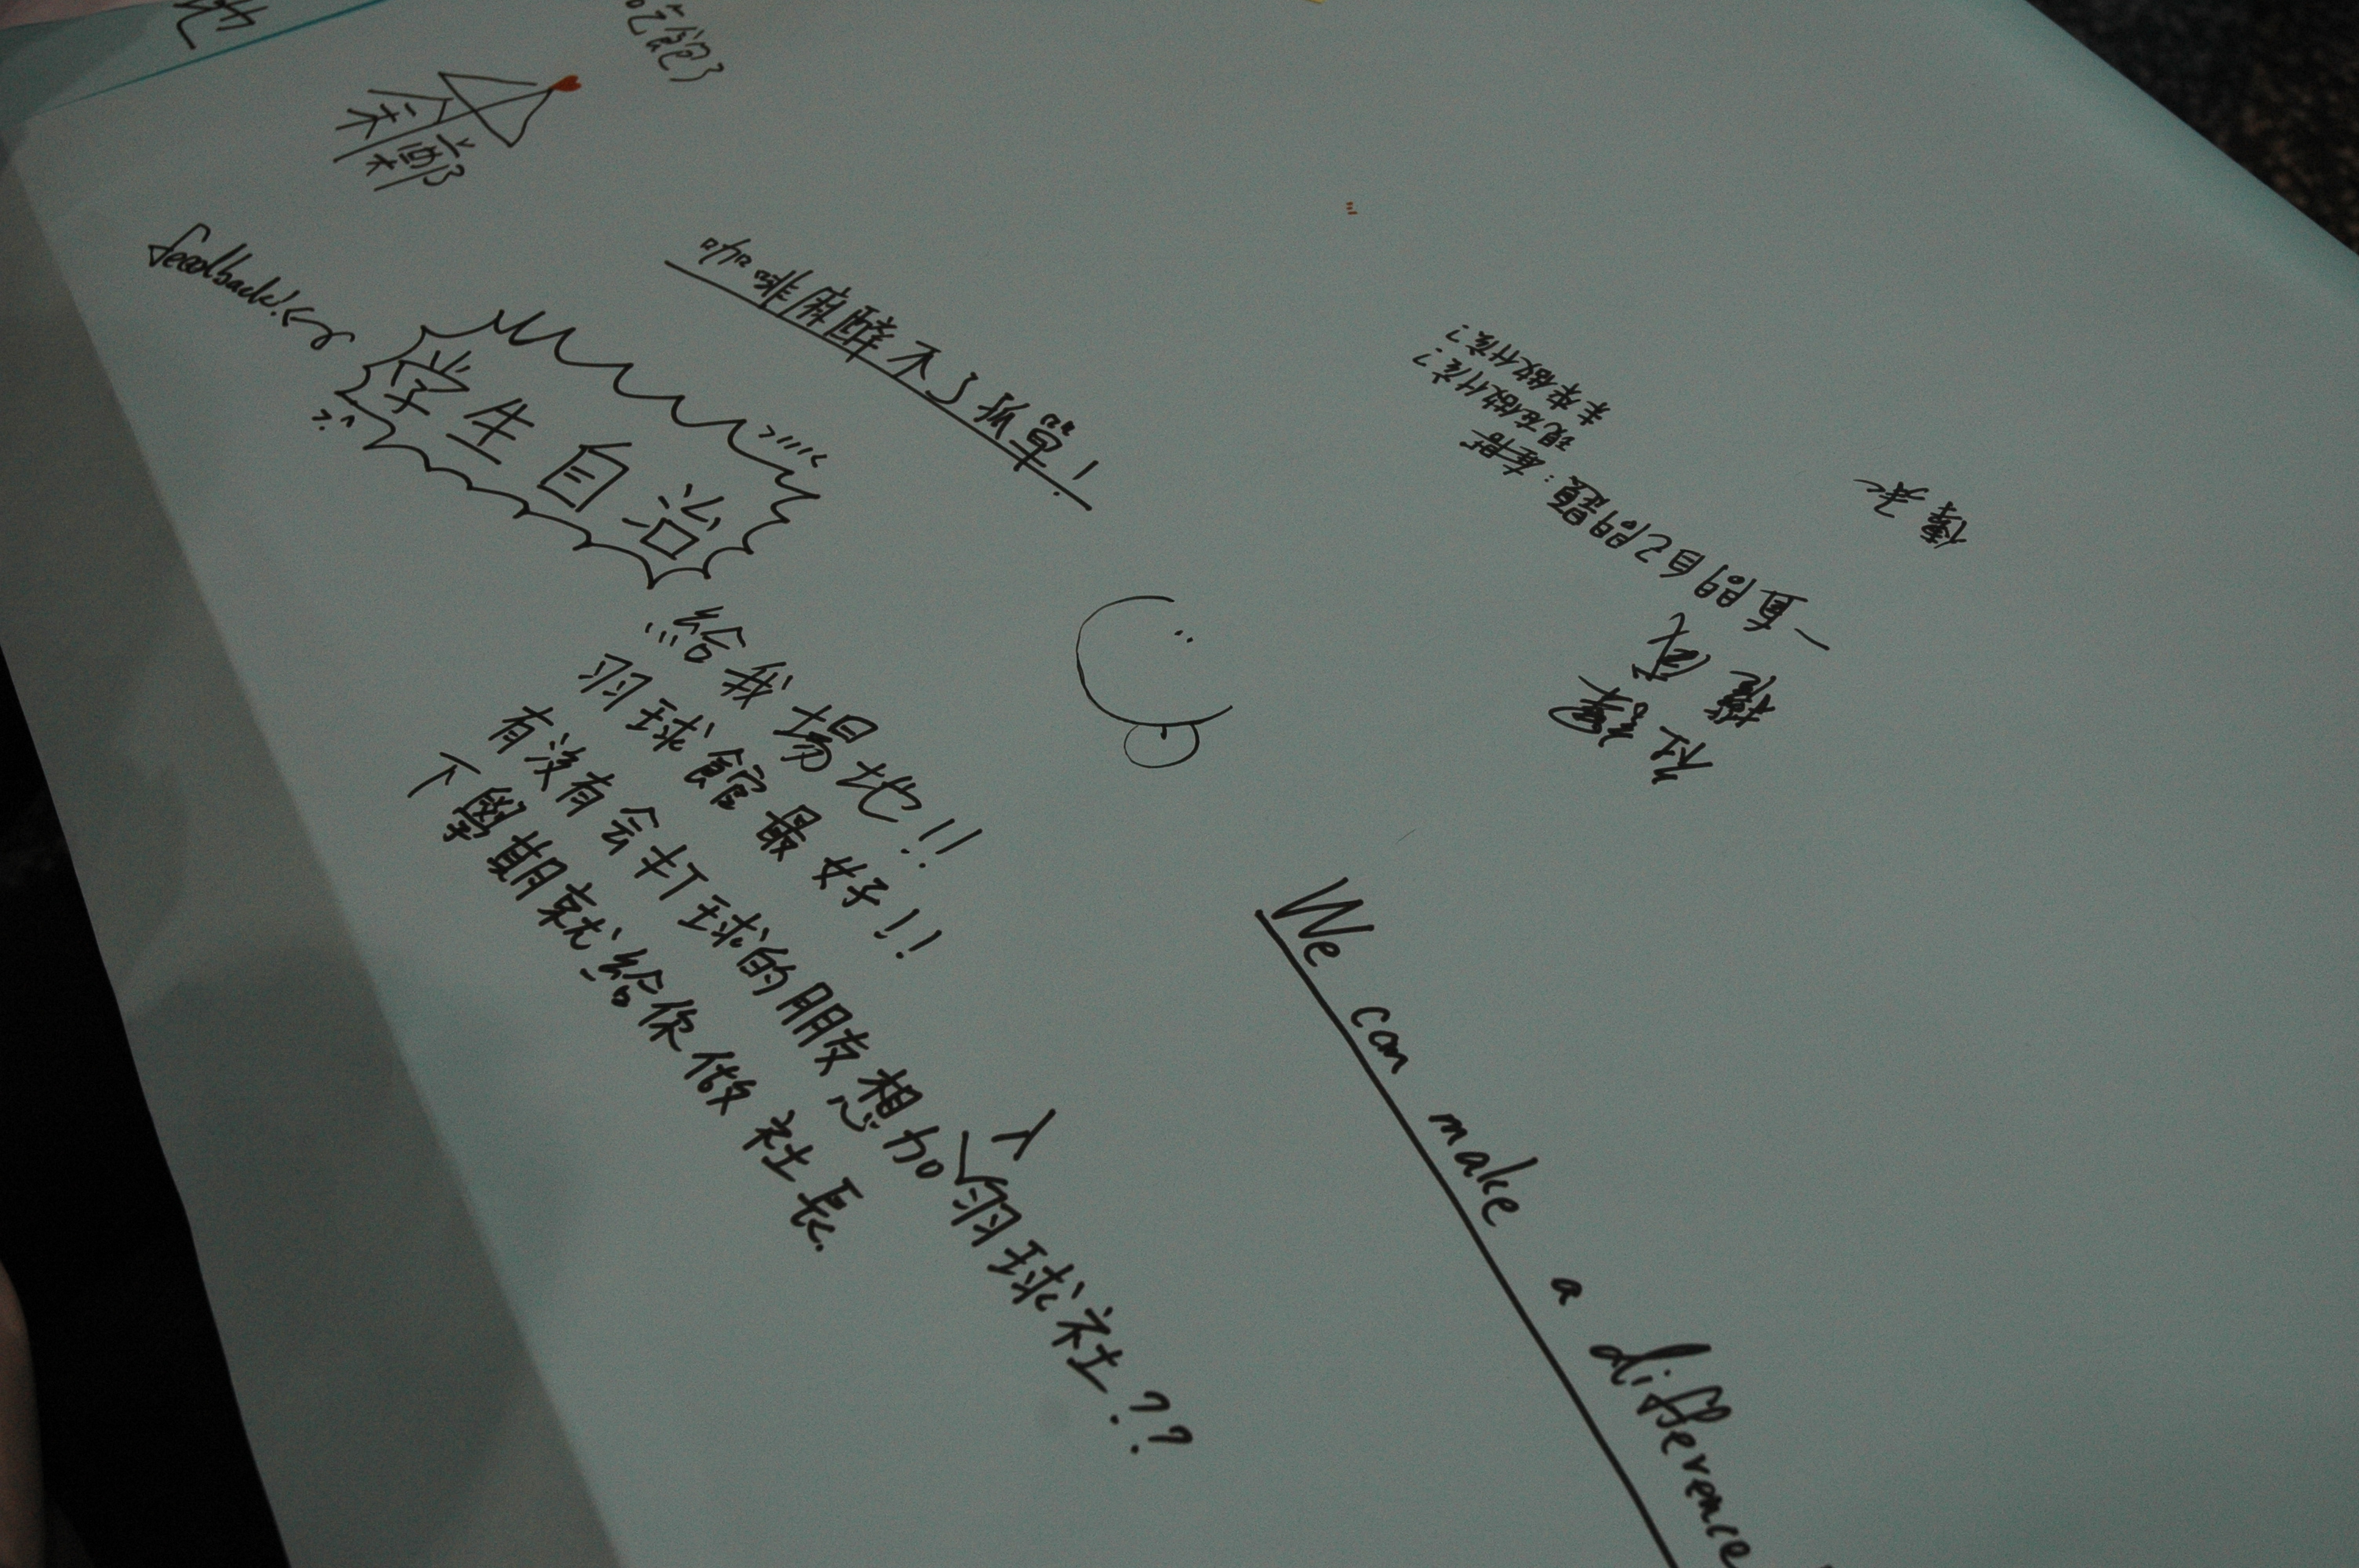 地
feedback!
咖啡麻醉不了孤單!
学生自治
給我場地!!
羽球館最好!!
有没有会打球的朋友想加入羽球社??
下學期就給你做社長.
We can make a difference
傳承
一直問自己問題:
現在做什麼?
未來做什麼?